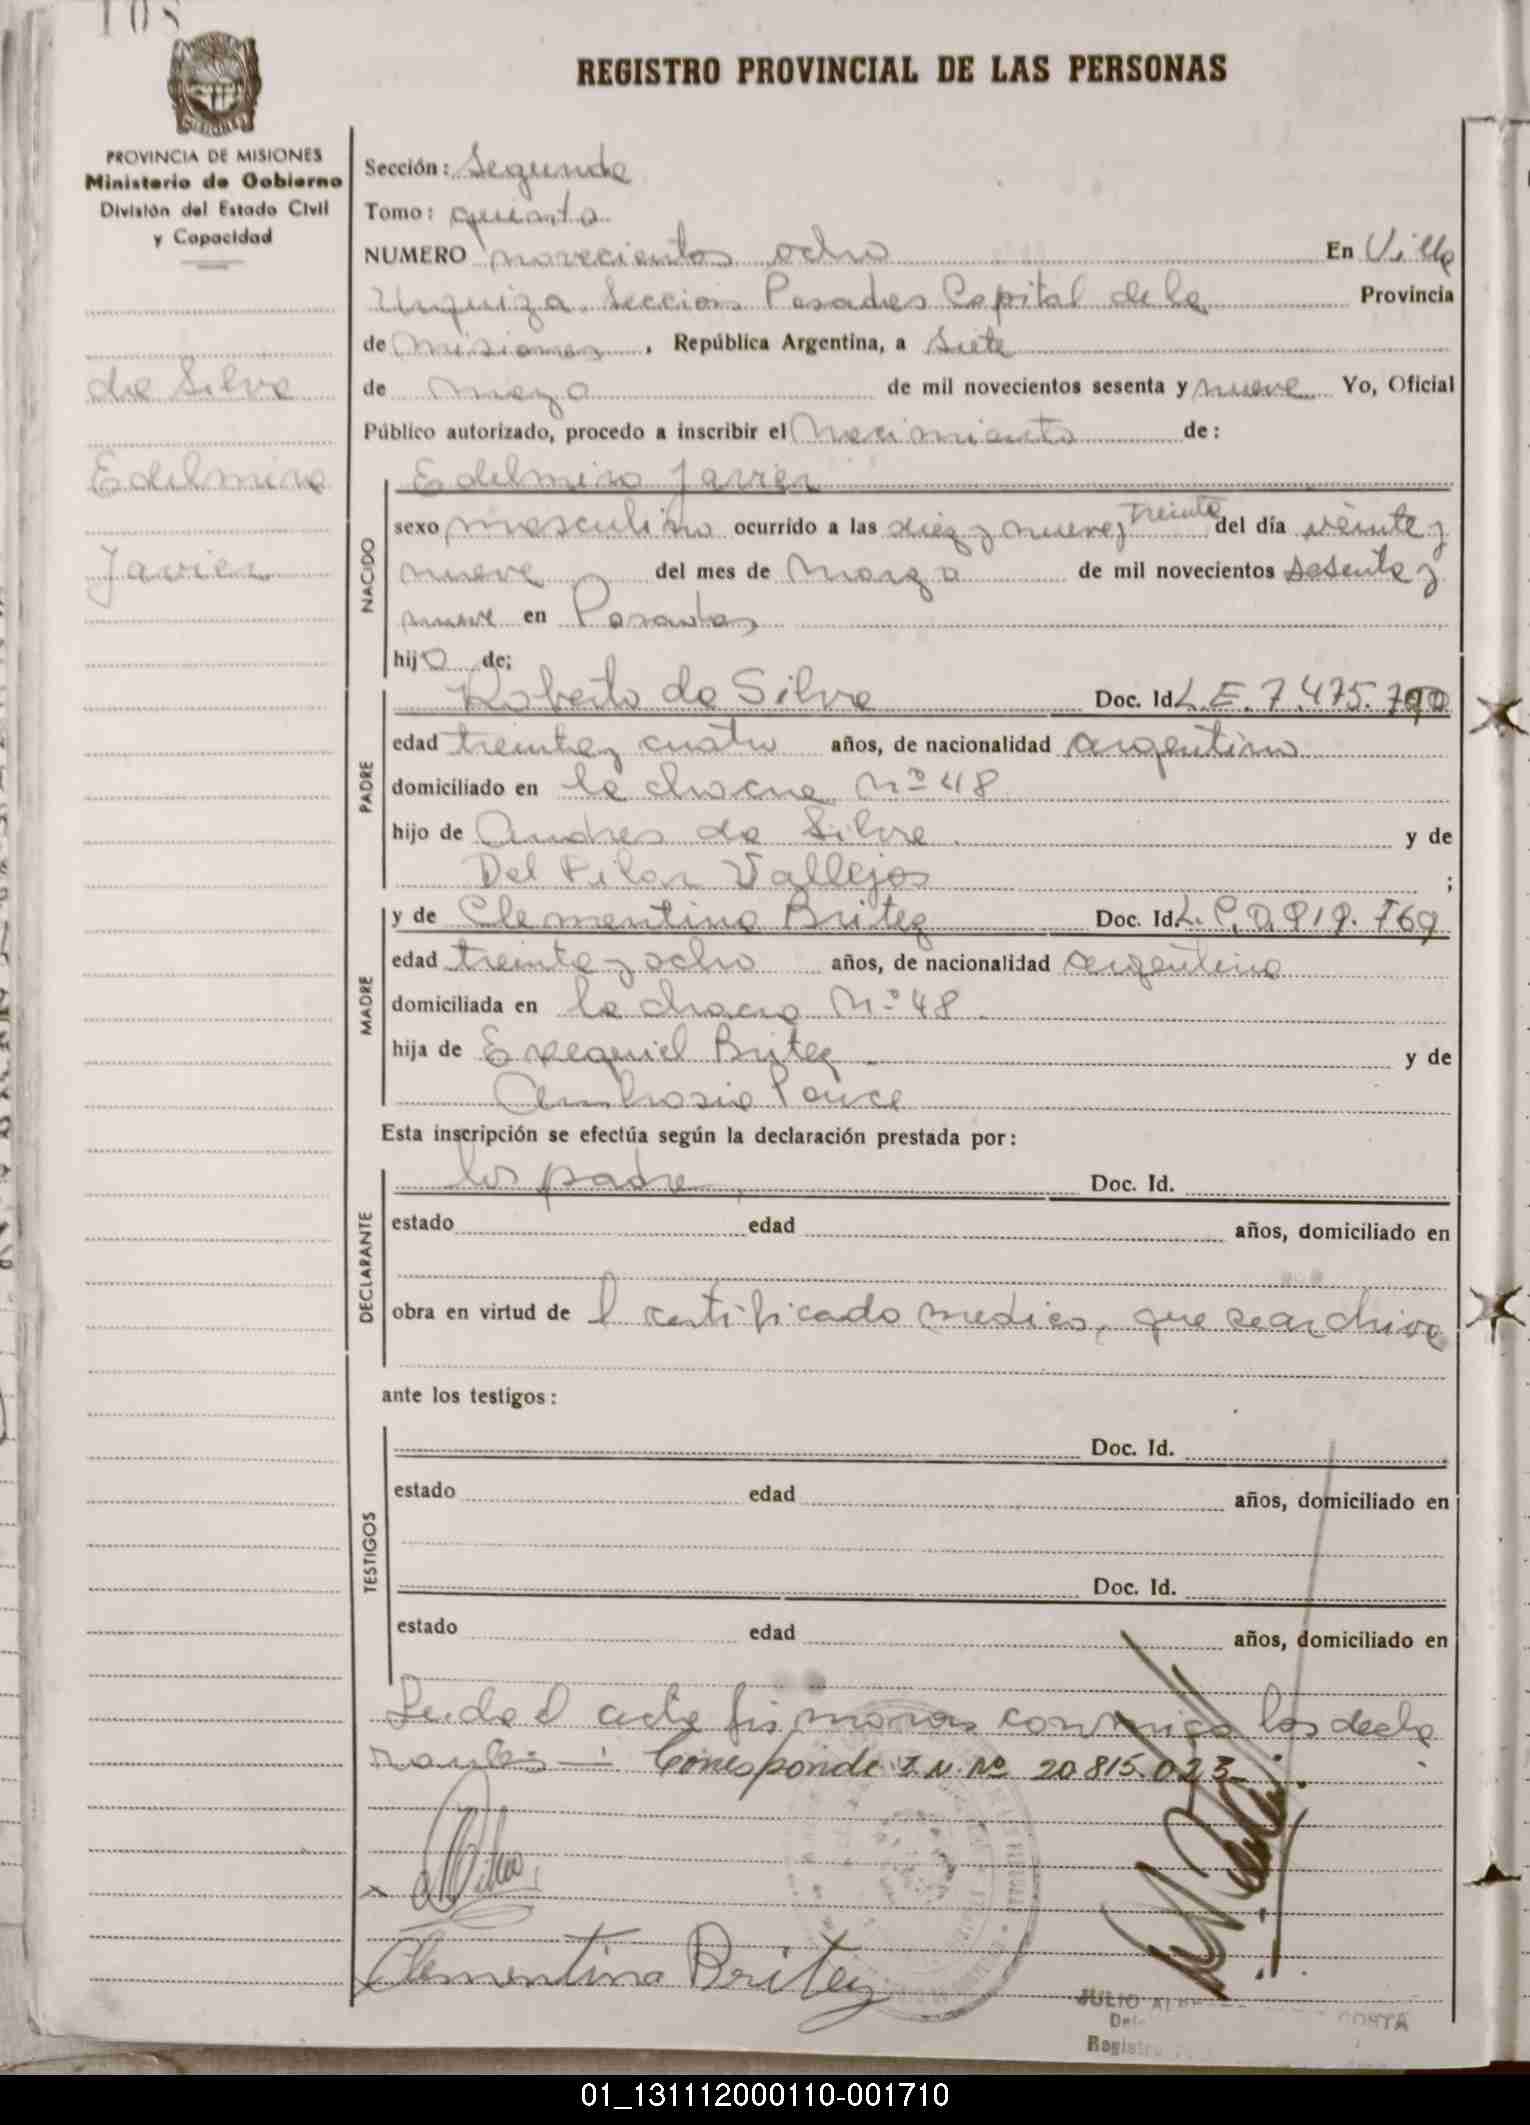 108
REGISTRO PROVINCIAL DE LAS PERSONAS
MISIONES
PROVINCIA DE MISIONES
Ministerio de Gobierno
División del Estado Civil
y Capacidad
da Silva
Edelmiro
Javier
Sección: Segunda
Tomo: quinto
NUMERO novecientos ocho En Villa
Urquiza Sección Posadas Capital de la Provincia
de Misiones, República Argentina, a siete
de mayo de mil novecientos sesenta y nueve Yo, Oficial
Público autorizado, procedo a inscribir el Nacimiento de:
NACIDO
Edelmiro Javier
sexo masculino ocurrido a las diez y nueve y treinta del día veinte y
nueve del mes de Marzo de mil novecientos sesenta y
nueve en Posadas
hijo de;
PADRE
Roberto da Silva Doc. Id. L.E. 7.475.790
edad treinta y cuatro años, de nacionalidad argentino
domiciliado en la chacra Nº 48
hijo de Andres da Silva y de
Del Pilar Vallejos ;
MADRE
y de Clementina Britez Doc. Id. L.C. 0.919.769
edad treinta y ocho años, de nacionalidad argentina
domiciliada en la chacra Nº 48.
hija de Exequiel Britez y de
Ambrosia Ponce
Esta inscripción se efectúa según la declaración prestada por:
DECLARANTE
los padre Doc. Id.
estado edad años, domiciliado en
obra en virtud de l certificado medico, que se archiva
ante los testigos:
TESTIGOS
Doc. Id.
estado edad años, domiciliado en
Doc. Id.
estado edad años, domiciliado en
Leida el acta firmaron conmigo los decla
rantes — Corresponde I.N. Nº 20.815.023
Clementina Britez
JULIO COSTA
Registro
01_131112000110-001710